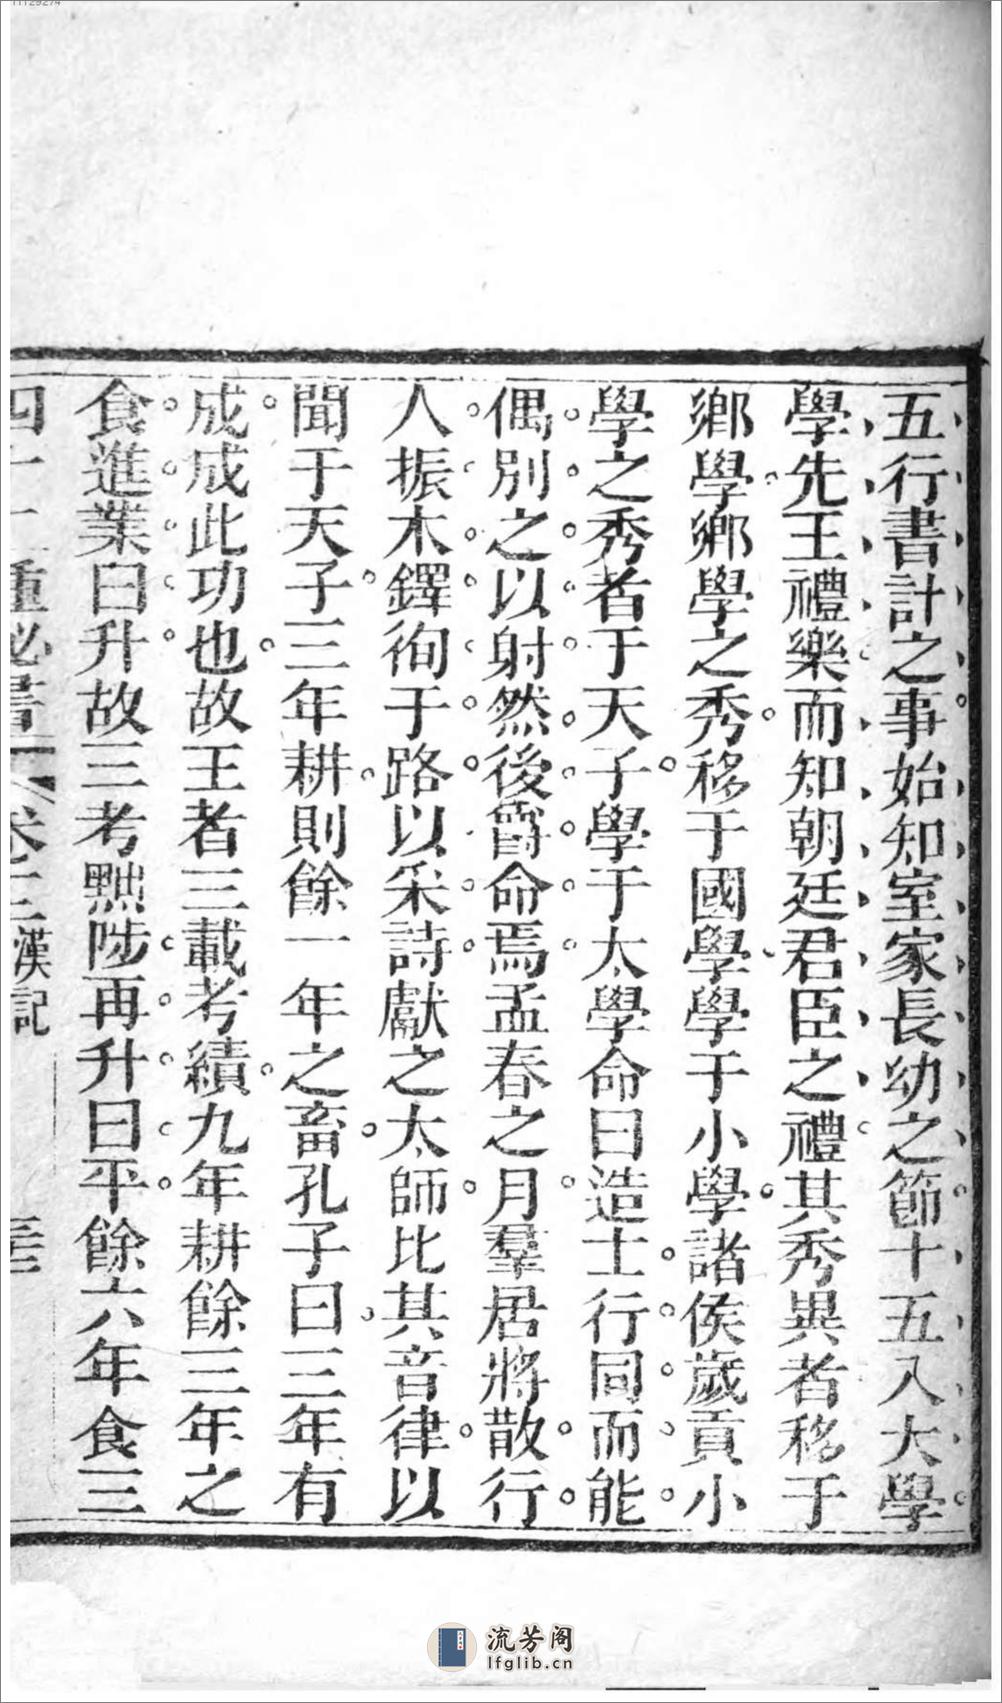 五行書計之事始知室家長幼之節十五入大學
學先王禮樂而知朝廷君臣之禮其秀異者移于
鄉學鄉學之秀移于國學學于小學諸侯歲貢小
學之秀者于天子學于太學命曰造士行同而能
偶別之以射然後爵命焉孟春之月羣居將散行
人振木鐸徇于路以采詩獻之太師比其音律以
聞于天子三年耕則餘一年之畜孔子曰三年有
成成此功也故王者三載考績九年耕餘三年之
食進業曰升故三考黜陟再升曰平餘六年食三
種祕書 漢記
流芳阁
lfglib.cn